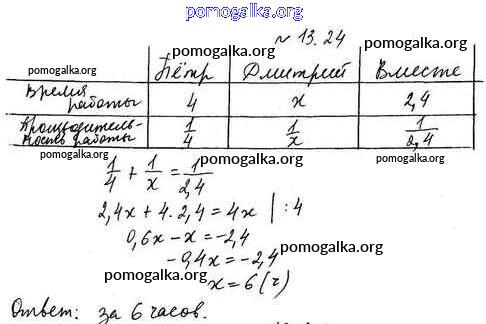 pomogalka.org
№ 13.24
pomogalka.org
Пётр Дмитрий Вместе
pomogalka.org pomogalka.org pomogalka.org
Время работы 4 x 2,4
Производительность работы 1/4 1/x 1/2,4
pomogalka.org pomogalka.org pomogalka.org
1/4 + 1/x = 1/2,4
pomogalka.org
2,4x + 4·2,4 = 4x | :4
pomogalka.org
0,6x - x = -2,4
pomogalka.org
-0,4x = -2,4
pomogalka.org
x = 6 (ч)
pomogalka.org
Ответ: за 6 часов.
pomogalka.org